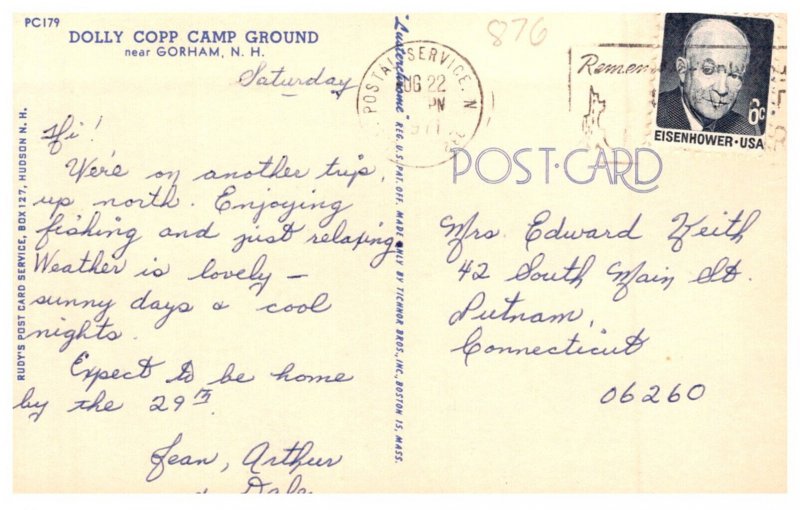 PC179
DOLLY COPP CAMP GROUND
near GORHAM, N. H.
Saturday
Hi!
We're on another trip,
up north. Enjoying
fishing and just relaxing.
Weather is lovely –
sunny days & cool
nights.
Expect to be home
by the 29th.
Jean, Arthur
& Dale
RUDY'S POST CARD SERVICE, BOX 127, HUDSON N. H.
"Lusterchrome" REG. U.S. PAT. OFF. MADE ONLY BY TICHNOR BROS., INC., BOSTON 15, MASS.
876
POSTAL SERVICE, N
AUG 22
PM
Remem
Only
6c
EISENHOWER·USA
POST·CARD
Mrs. Edward Keith
42 South Main St.
Putnam,
Connecticut
06260